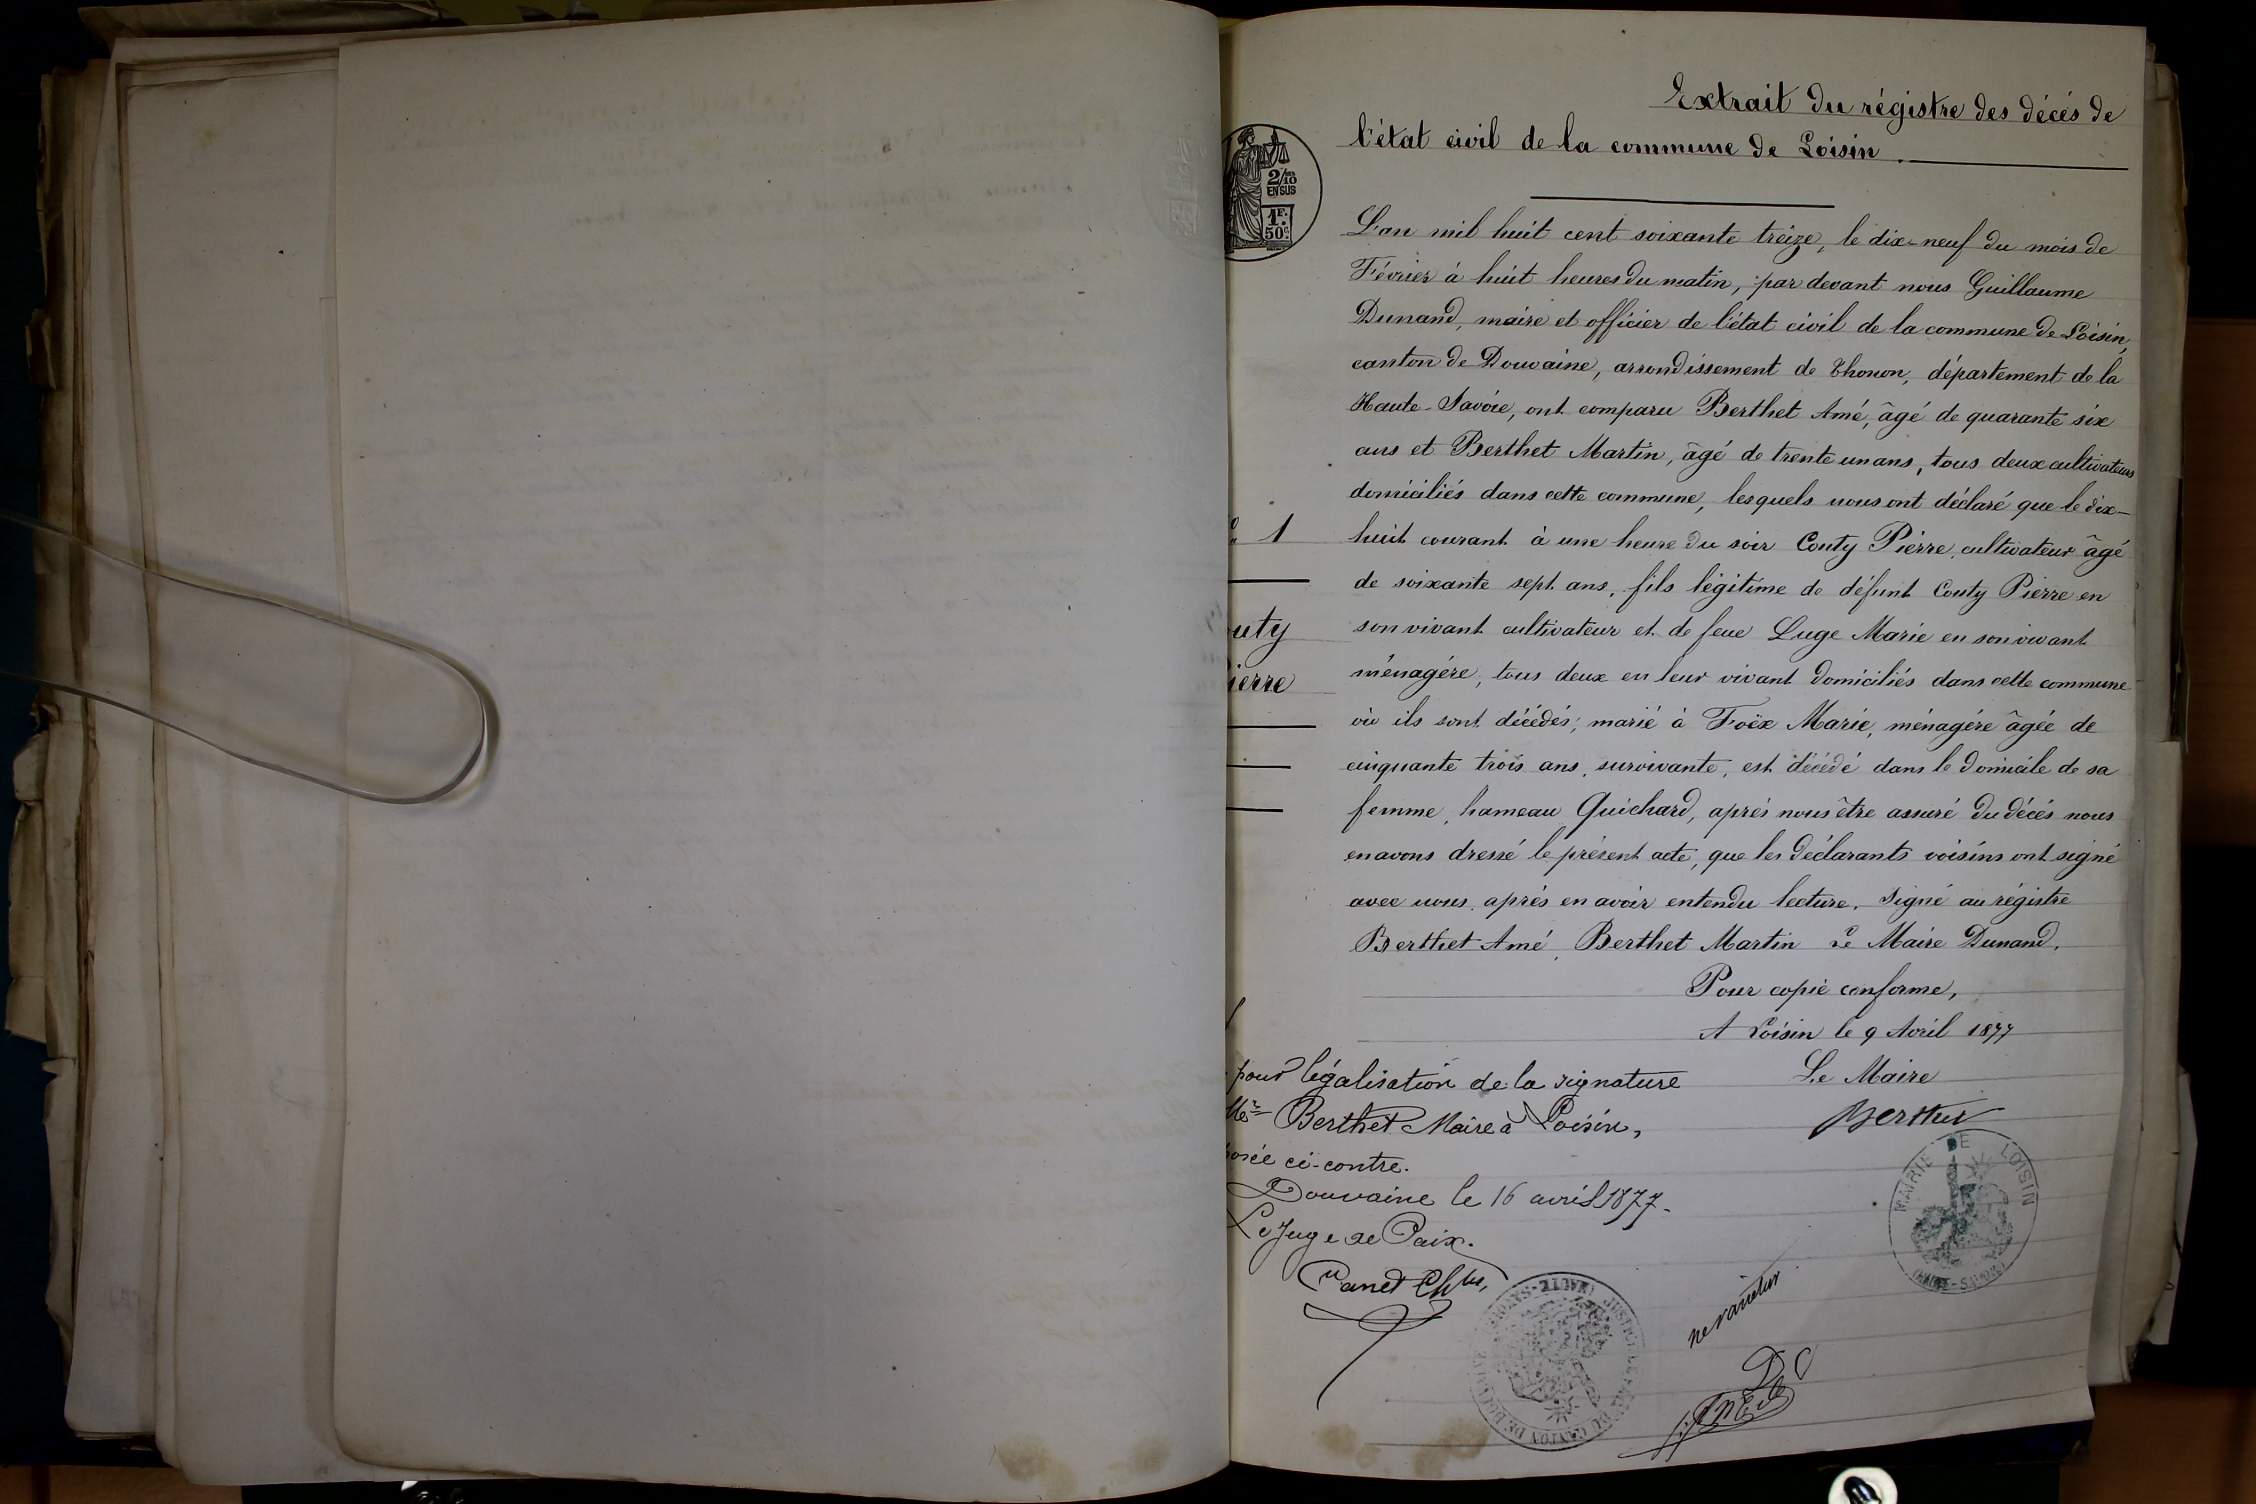 Extrait du régistre des décés de
l'état civil de la commune de Loisin.
2/10
EN SUS
1F.
50c.
L'an mil huit cent soixante treize, le dix-neuf du mois de
Février à huit heures du matin, par devant nous Guillaume
Dunand, maire et officier de l'état civil de la commune de Loisin,
canton de Douvaine, arrondissement de Thonon, département de la
Haute-Savoie, ont comparu Berthet Amé, âgé de quarante six
ans et Berthet Martin, âgé de trente un ans, tous deux cultivateurs
domiciliés dans cette commune, lesquels nous ont déclaré que le dix-
1
huit courant à une heure du soir Couty Pierre, cultivateur âgé
de soixante sept ans, fils légitime de défunt Couty Pierre en
outy
son vivant cultivateur et de feue Luge Marie en son vivant
ierre
ménagére, tous deux en leur vivant domiciliés dans cette commune
où ils sont décédés; marié à Foëx Marie, ménagére âgée de
cinquante trois ans, survivante, est décédé dans le domicile de sa
femme, hameau Guichard, aprés nous être assuré du décés nous
en avons dressé le présent acte, que les déclarants voisins ont signé
avec nous, aprés en avoir entendu lecture. Signé au régistre
Berthet Amé, Berthet Martin Le Maire Dunand.
Pour copie conforme,
A Loisin le 9 Avril 1877
Le Maire
Berthet
pour légalisation de la signature
Berthet Maire à Loisin,
osée ci-contre.
Douvaine le 16 avril 1877.
Le Juge de Paix.
MAIRIE DE LOISIN
(HAUTE-SAVOIE)
ne varietur